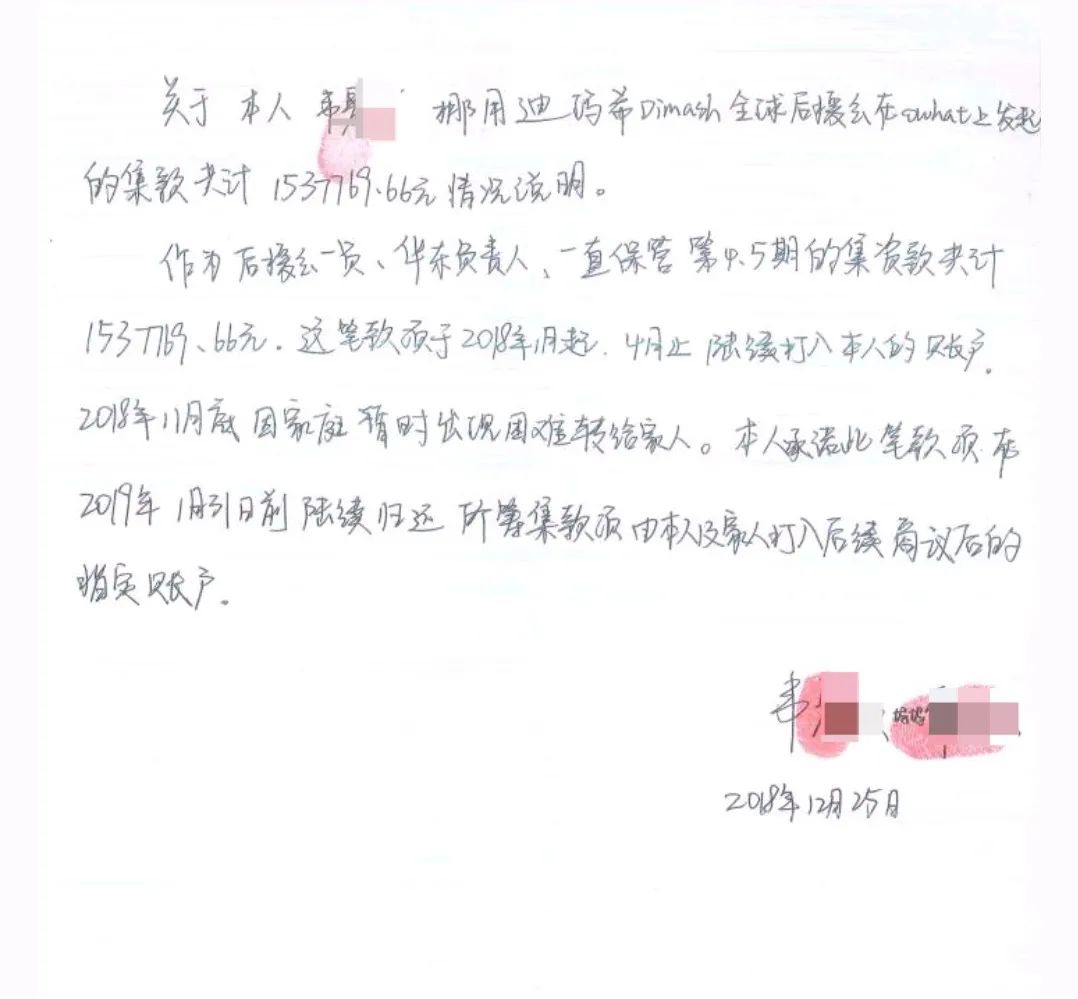 关于 本人 韦 挪用迪玛希Dimash全球后援会在owhat上发起
的集款共计 1537769.66元情况说明。
作为后援会一员、华东负责人、一直保管第4.5期的集资款共计
1537769.66元. 这笔款项于2018年1月起.4月止 陆续打入本人的账户.
2018年11月底因家庭暂时出现困难转给家人。本人承诺此笔款项在
2019年1月31日前陆续归还 所筹集款项由本人及家人打入后续商议后的
指定账户.
韦 、妈妈
2018年12月25日